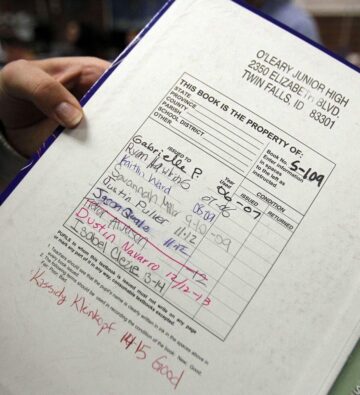 O'LEARY JUNIOR HIGH
2350 ELIZABETH BLVD.
TWIN FALLS, ID 83301
THIS BOOK IS THE PROPERTY OF:
STATE
PROVINCE
COUNTY
PARISH
SCHOOL DISTRICT
OTHER
Book No. S-109
Enter information
in spaces
to the left as
instructed
ISSUED TO
Year Used
CONDITION
ISSUED
RETURNED
Gabriela P. 06-07
Ryan Hawkins
Faith Ward 08-09
Savannah 09-10
Justin Fuller 11-12
Jason 11-12
12
Dustin Navarro 12/12-13
Isabel 3-14
PUPILS to whom this textbook is issued must not write on any page
or mark any part of it in any way, consumable textbooks excepted.
1. Teachers should see that the pupil's name is clearly written in ink in the spaces above in
every book issued.
2. The following terms should be used in recording the condition of the book: New; Good;
Fair; Poor; Bad.
Kassidy Klenkopf 1415 Good